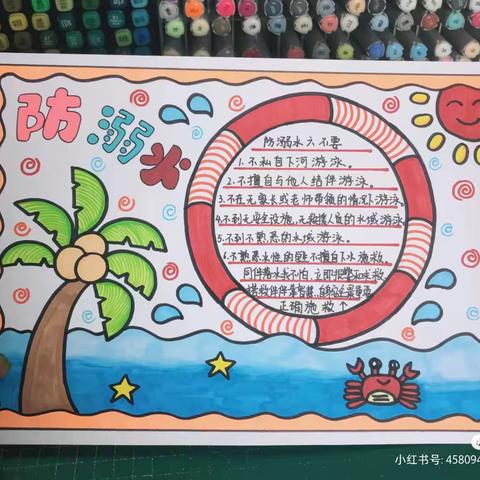 防溺水
防溺水六不要
1.不私自下河游泳。
2.不擅自与他人结伴游泳。
3.不在无家长或老师带领的情况下游泳
4.不到无安全设施、无救援人员的水域游泳
5.不到不熟悉的水域游泳。
6.不熟悉水性的学生不擅自下水施救。
同伴落水我不怕,立即报警和呼救
伙伴靠智慧
正确施救↑
小红书号: 458094